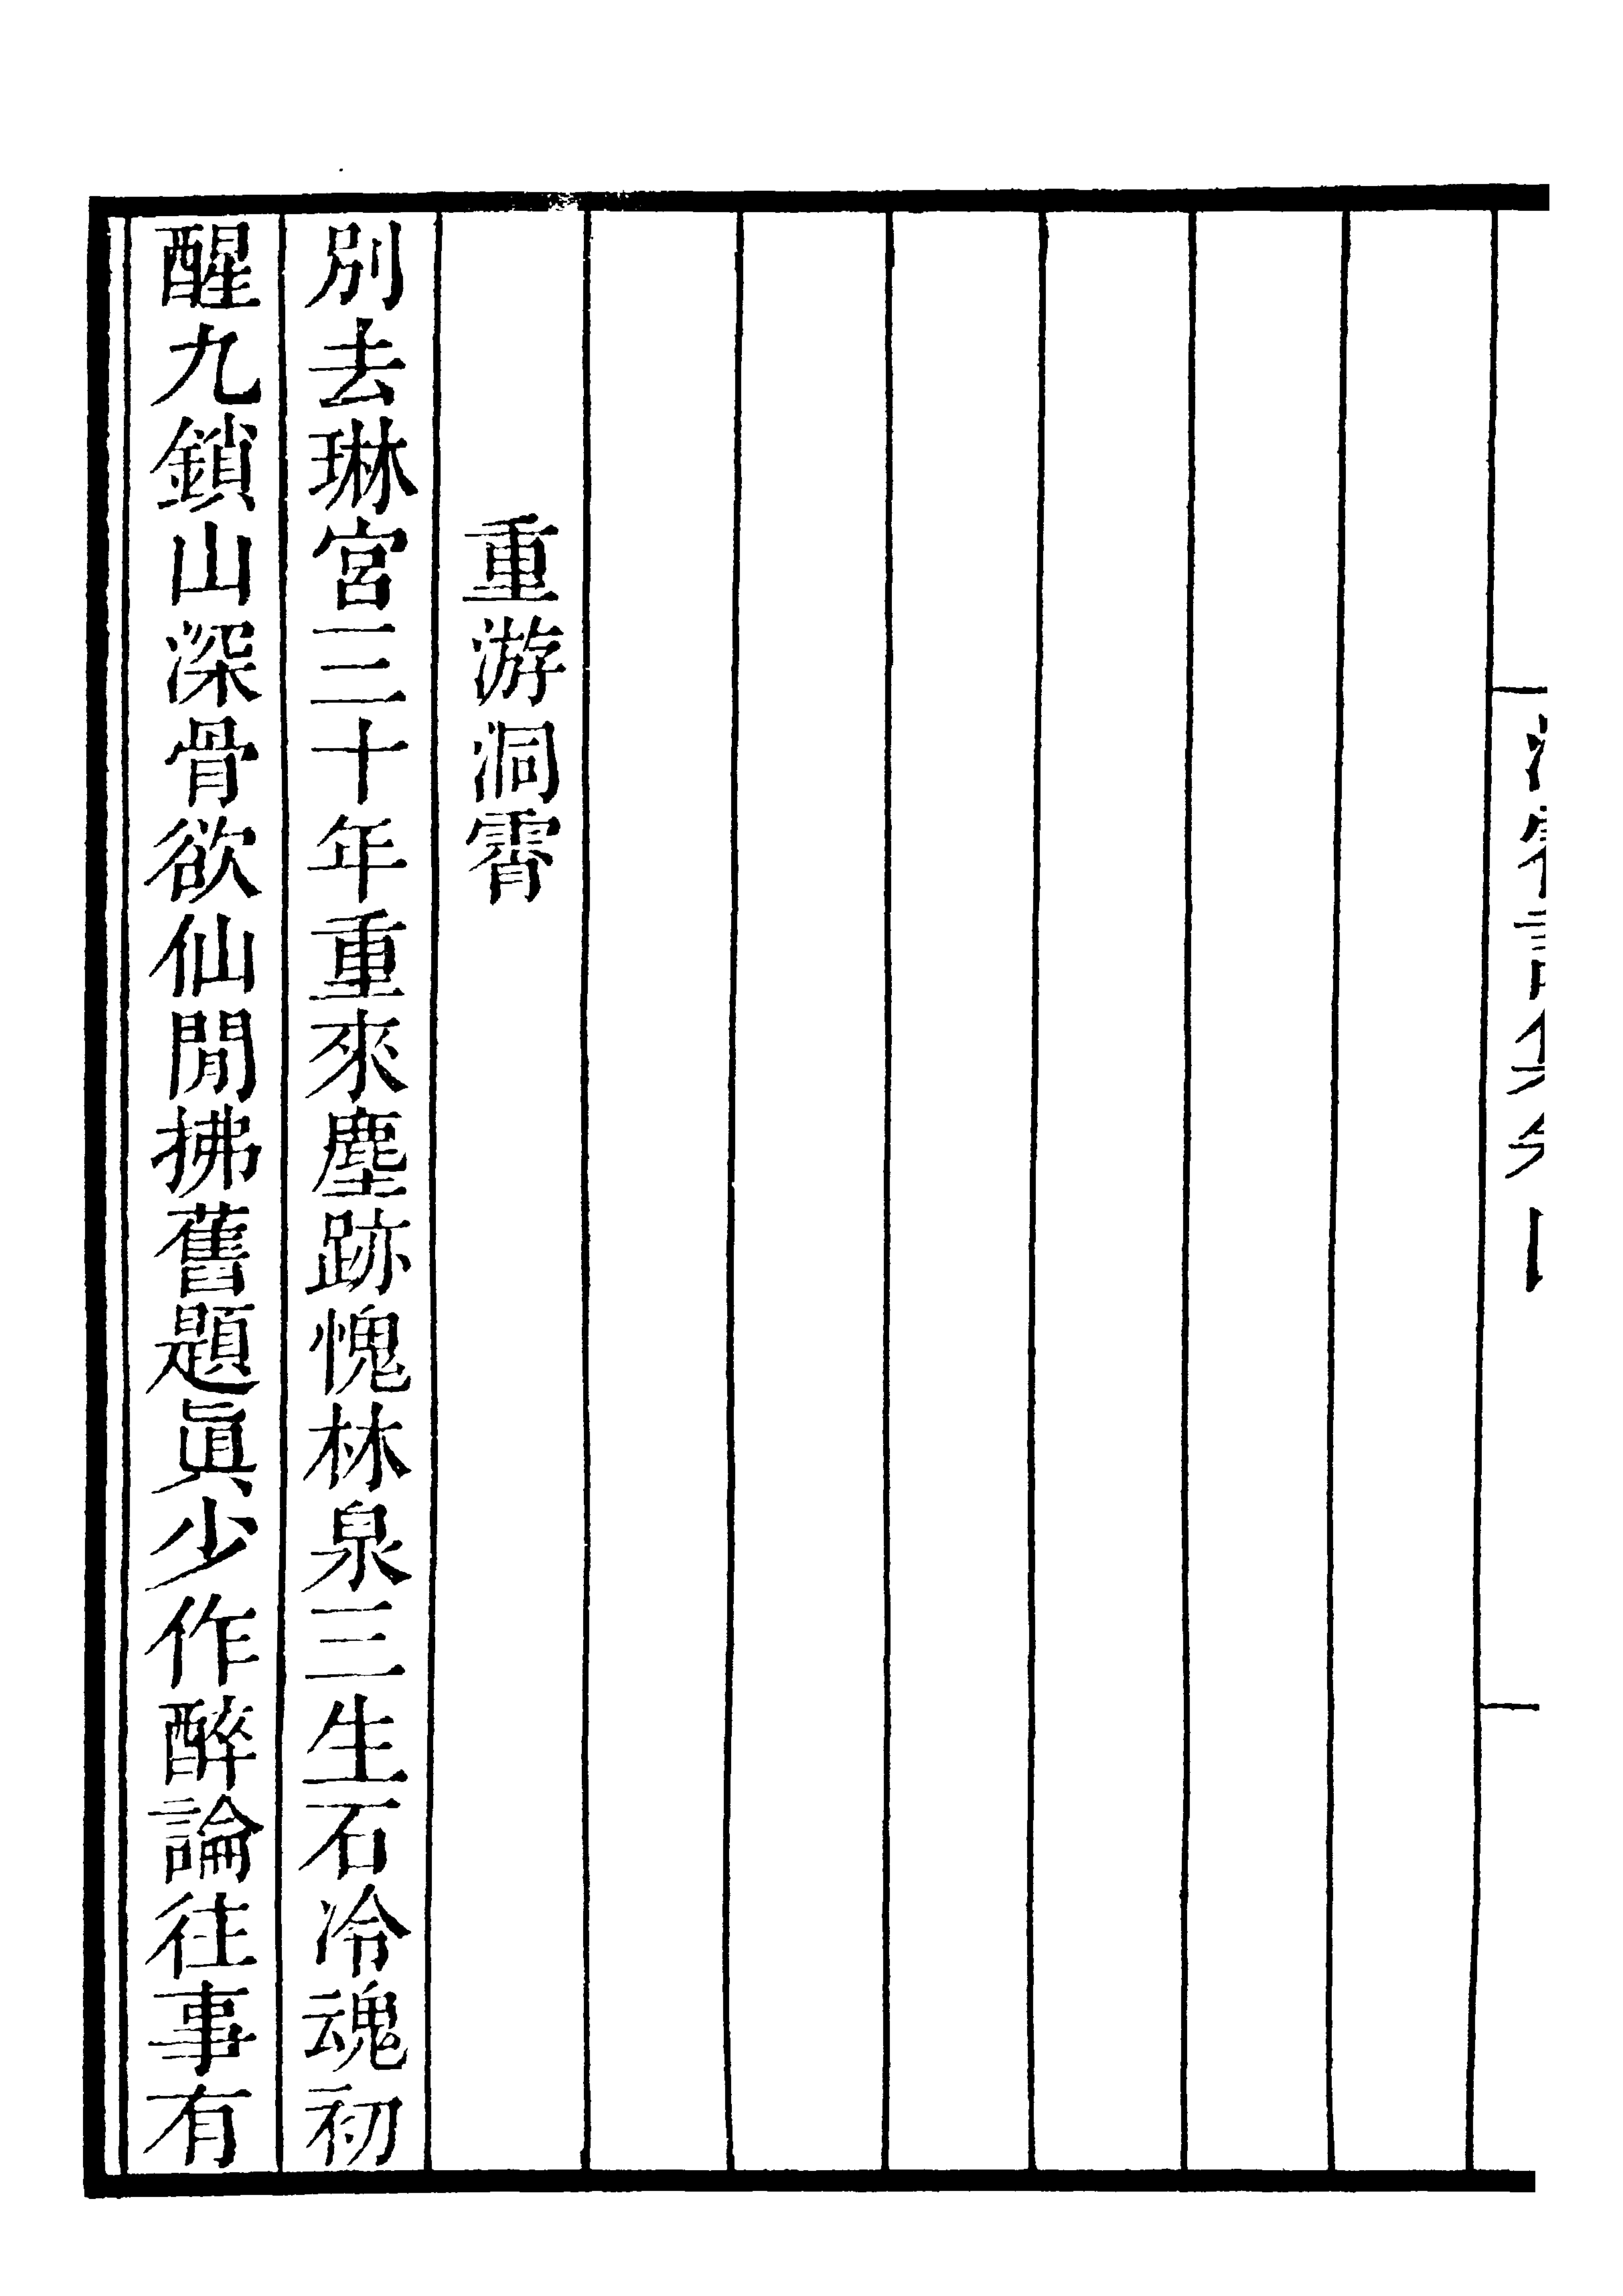 重游洞霄
別去琳宮三十年重來塵跡愧林泉三生石冷魂初
醒九鎖山深骨欲仙閒拂舊題眞少作醉論往事有